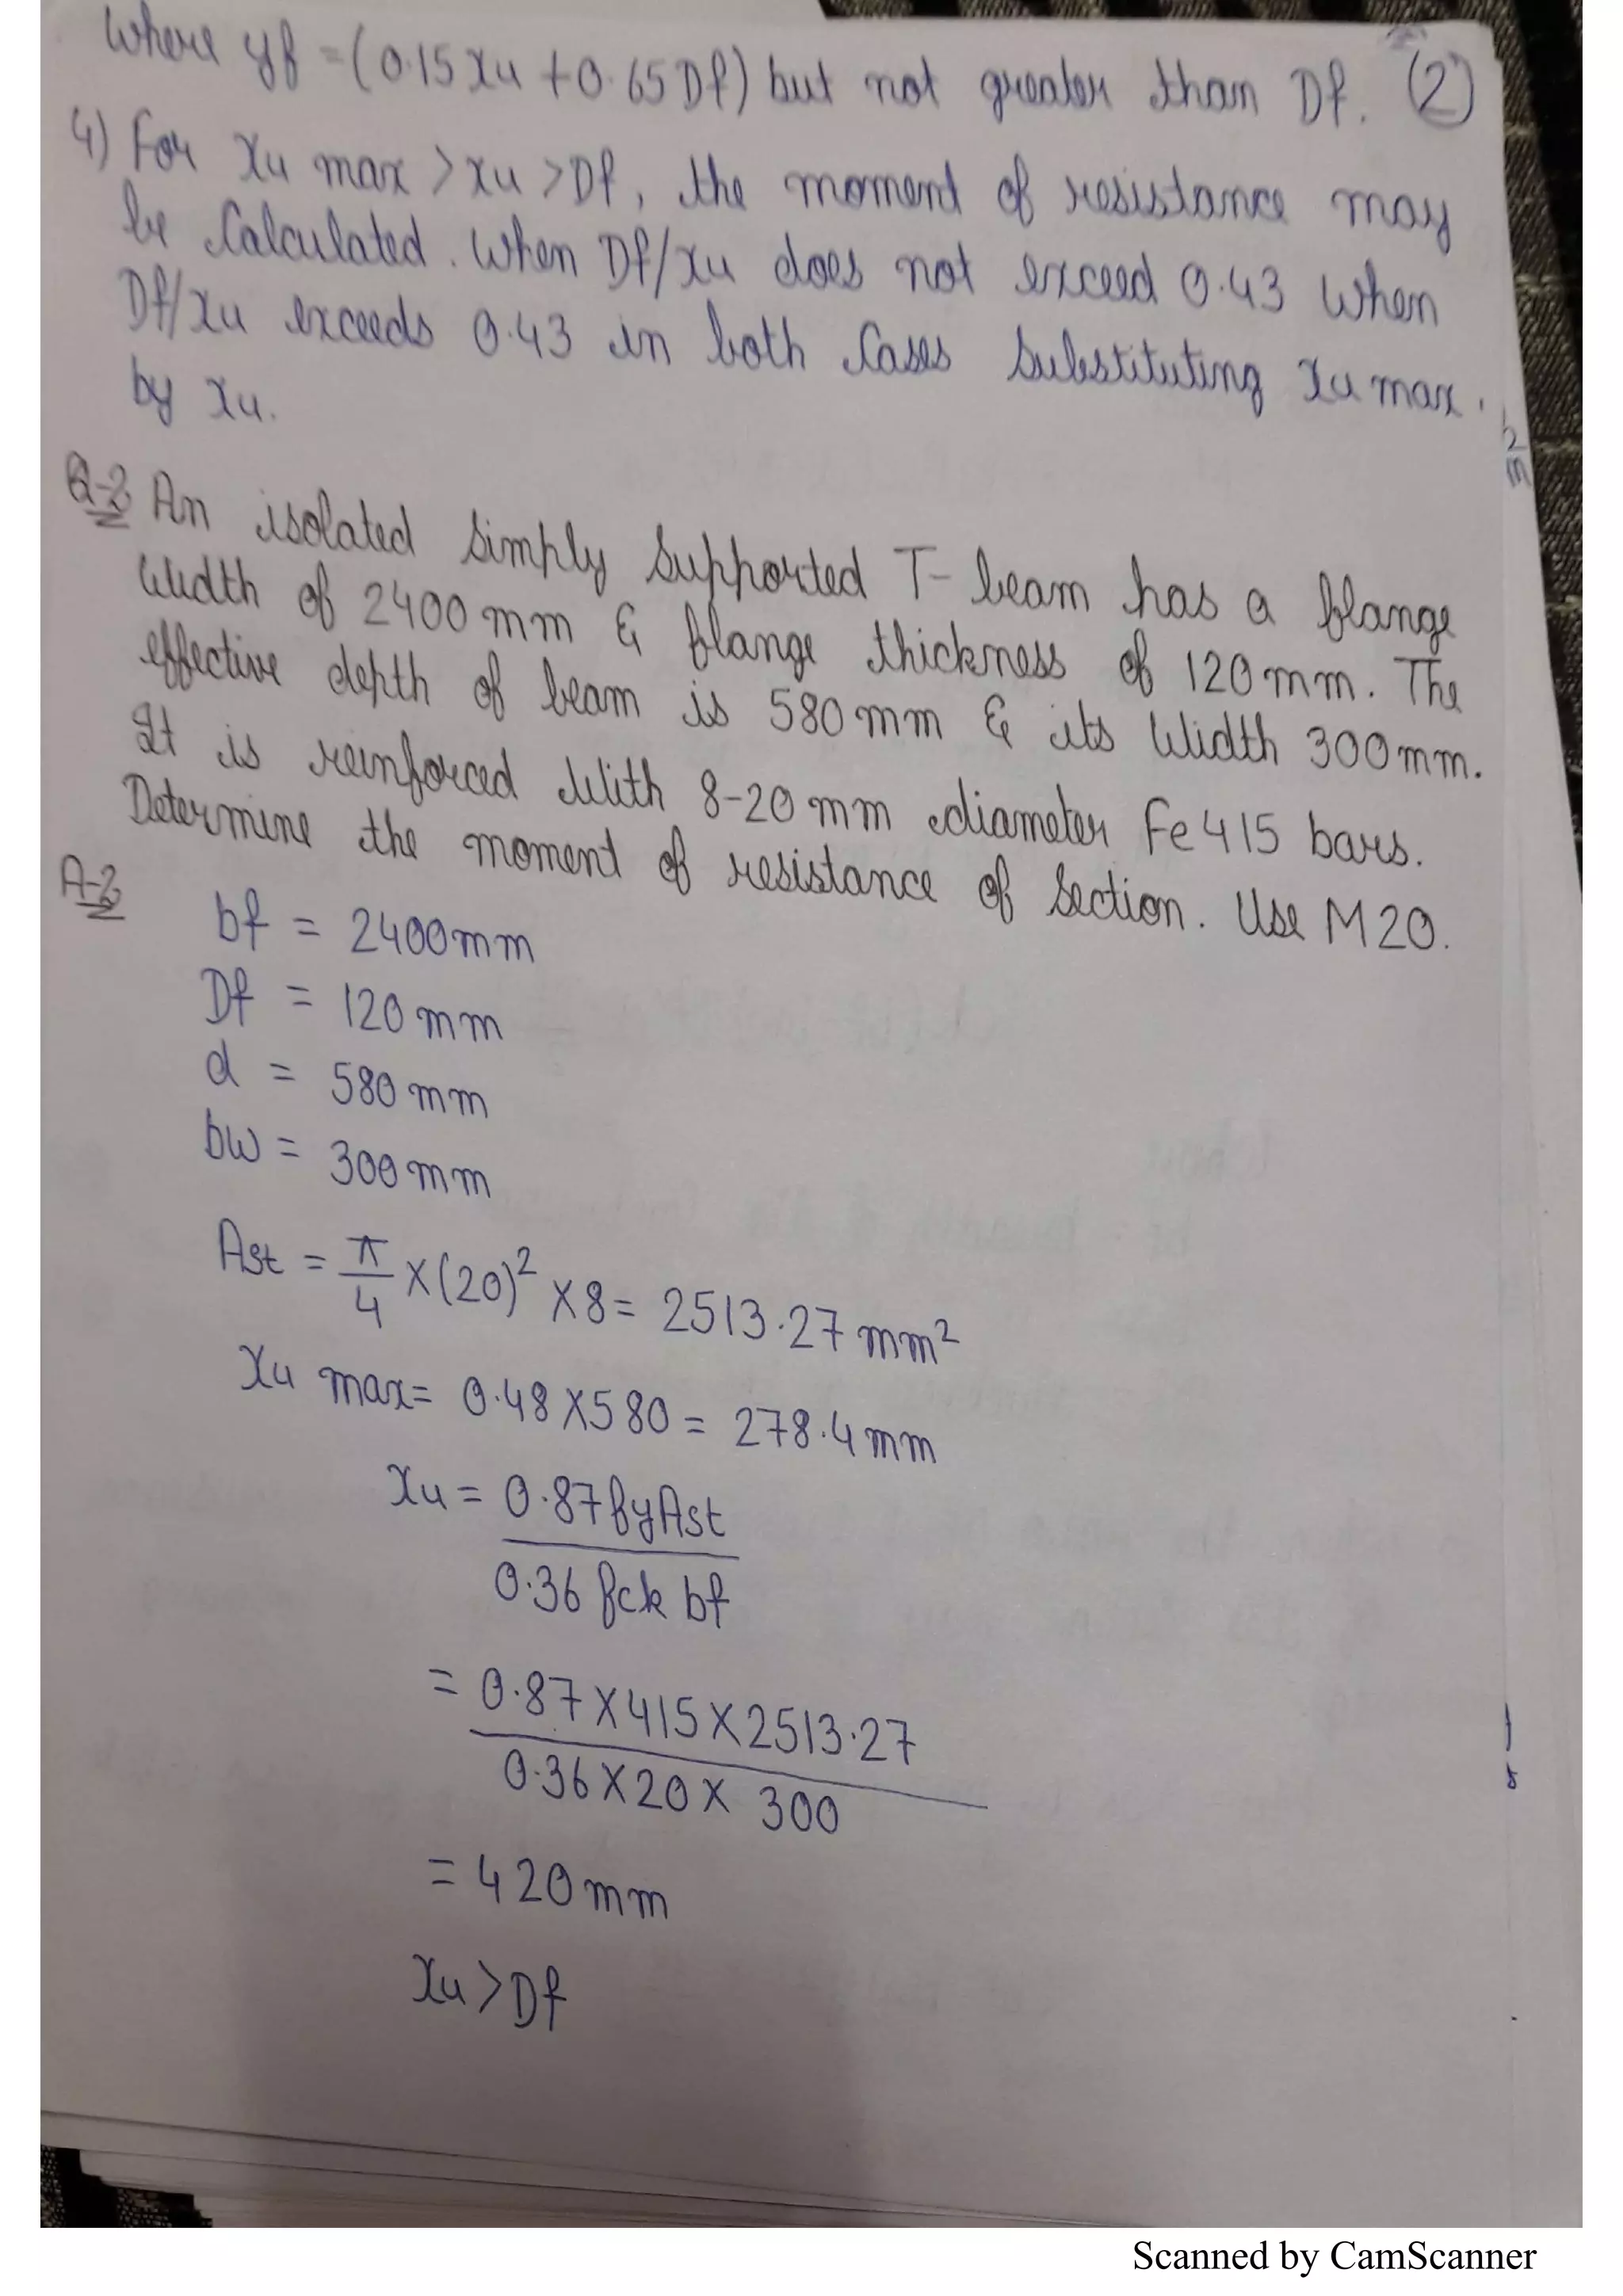 Where yf = (0.15 Xu + 0.65 Df) but not greater than Df. (2)
4) For Xu max > xu > Df, the moment of resistance may
be Calculated. When Df/xu does not exceed 0.43 When
Df/xu exceeds 0.43 in both Cases Substituting Xu max.
by Xu.
Q-2 An isolated simply supported T-beam has a flange
Width of 2400 mm & flange thickness of 120 mm. The
effective depth of beam is 580 mm & its Width 300 mm.
It is reinforced With 8-20 mm diameter Fe 415 bars.
Determine the moment of resistance of Section. Use M 20.
A-2
bf = 2400 mm
Df = 120 mm
d = 580 mm
bw = 300 mm
Ast = π/4 × (20)² × 8 = 2513.27 mm²
Xu max = 0.48 × 580 = 278.4 mm
Xu = 0.87 fy Ast
0.36 fck bf
= 0.87 × 415 × 2513.27
0.36 × 20 × 300
= 420 mm
Xu > Df
Scanned by CamScanner